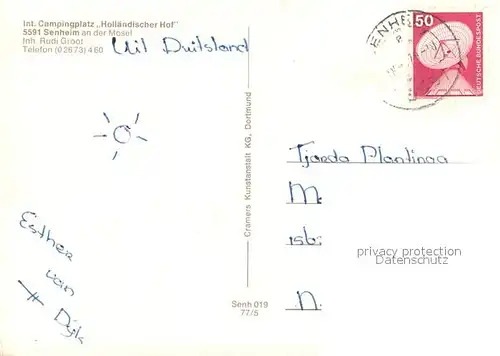 Int. Campingplatz „Holländischer Hof"
5591 Senheim an der Mosel
Inh. Rudi Groot
Telefon (02673) 4 60
Uit Duitsland
50
DEUTSCHE BUNDESPOST
SENHEI
Cramers Kunstanstalt KG, Dortmund
Tjarda Plantinga
M.
isb.
n.
privacy protection
Datenschutz
Esther
van
Dijk
Senh 019
77/5